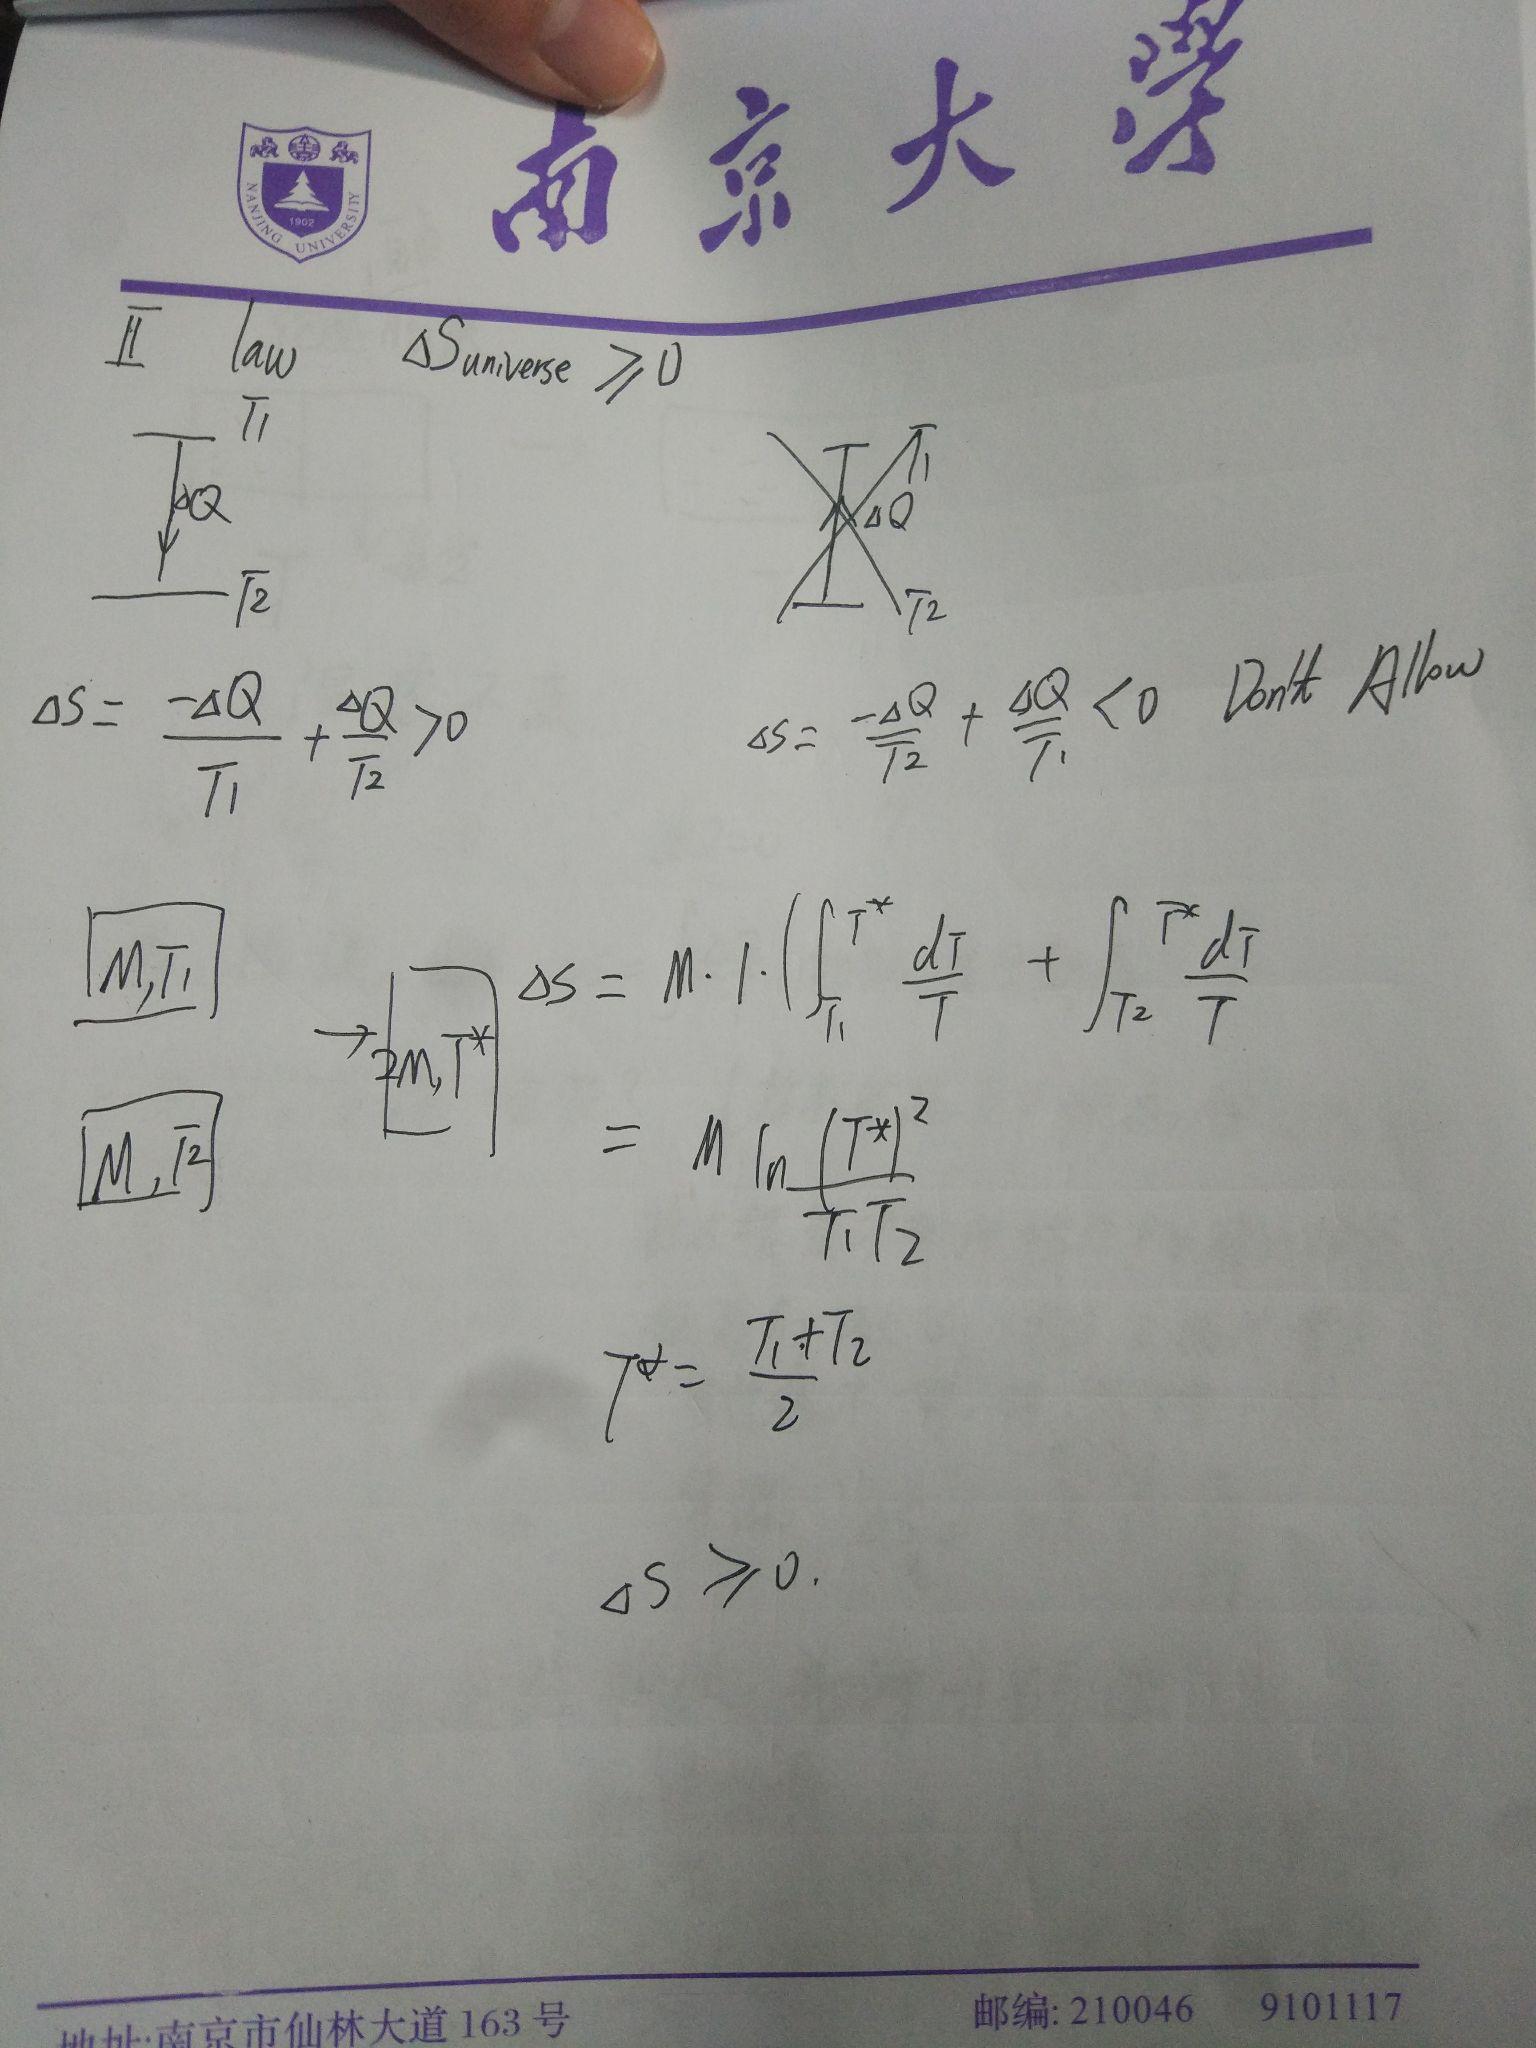 南京大學
NANJING UNIVERSITY
1902
II law ΔSuniverse ⩾ 0
T1
ΔQ
T2
T1
ΔQ
T2
ΔS = -ΔQ/T1 + ΔQ/T2 > 0
ΔS = -ΔQ/T2 + ΔQ/T1 < 0 Don't Allow
M,T1
M,T2
→ 2M,T*
ΔS = M·1·(∫_T1^T* dT/T + ∫_T2^T* dT/T
= M ln (T*)²/T1T2
T* = T1+T2/2
ΔS ⩾ 0.
地址:南京市仙林大道163号
邮编: 210046 9101117